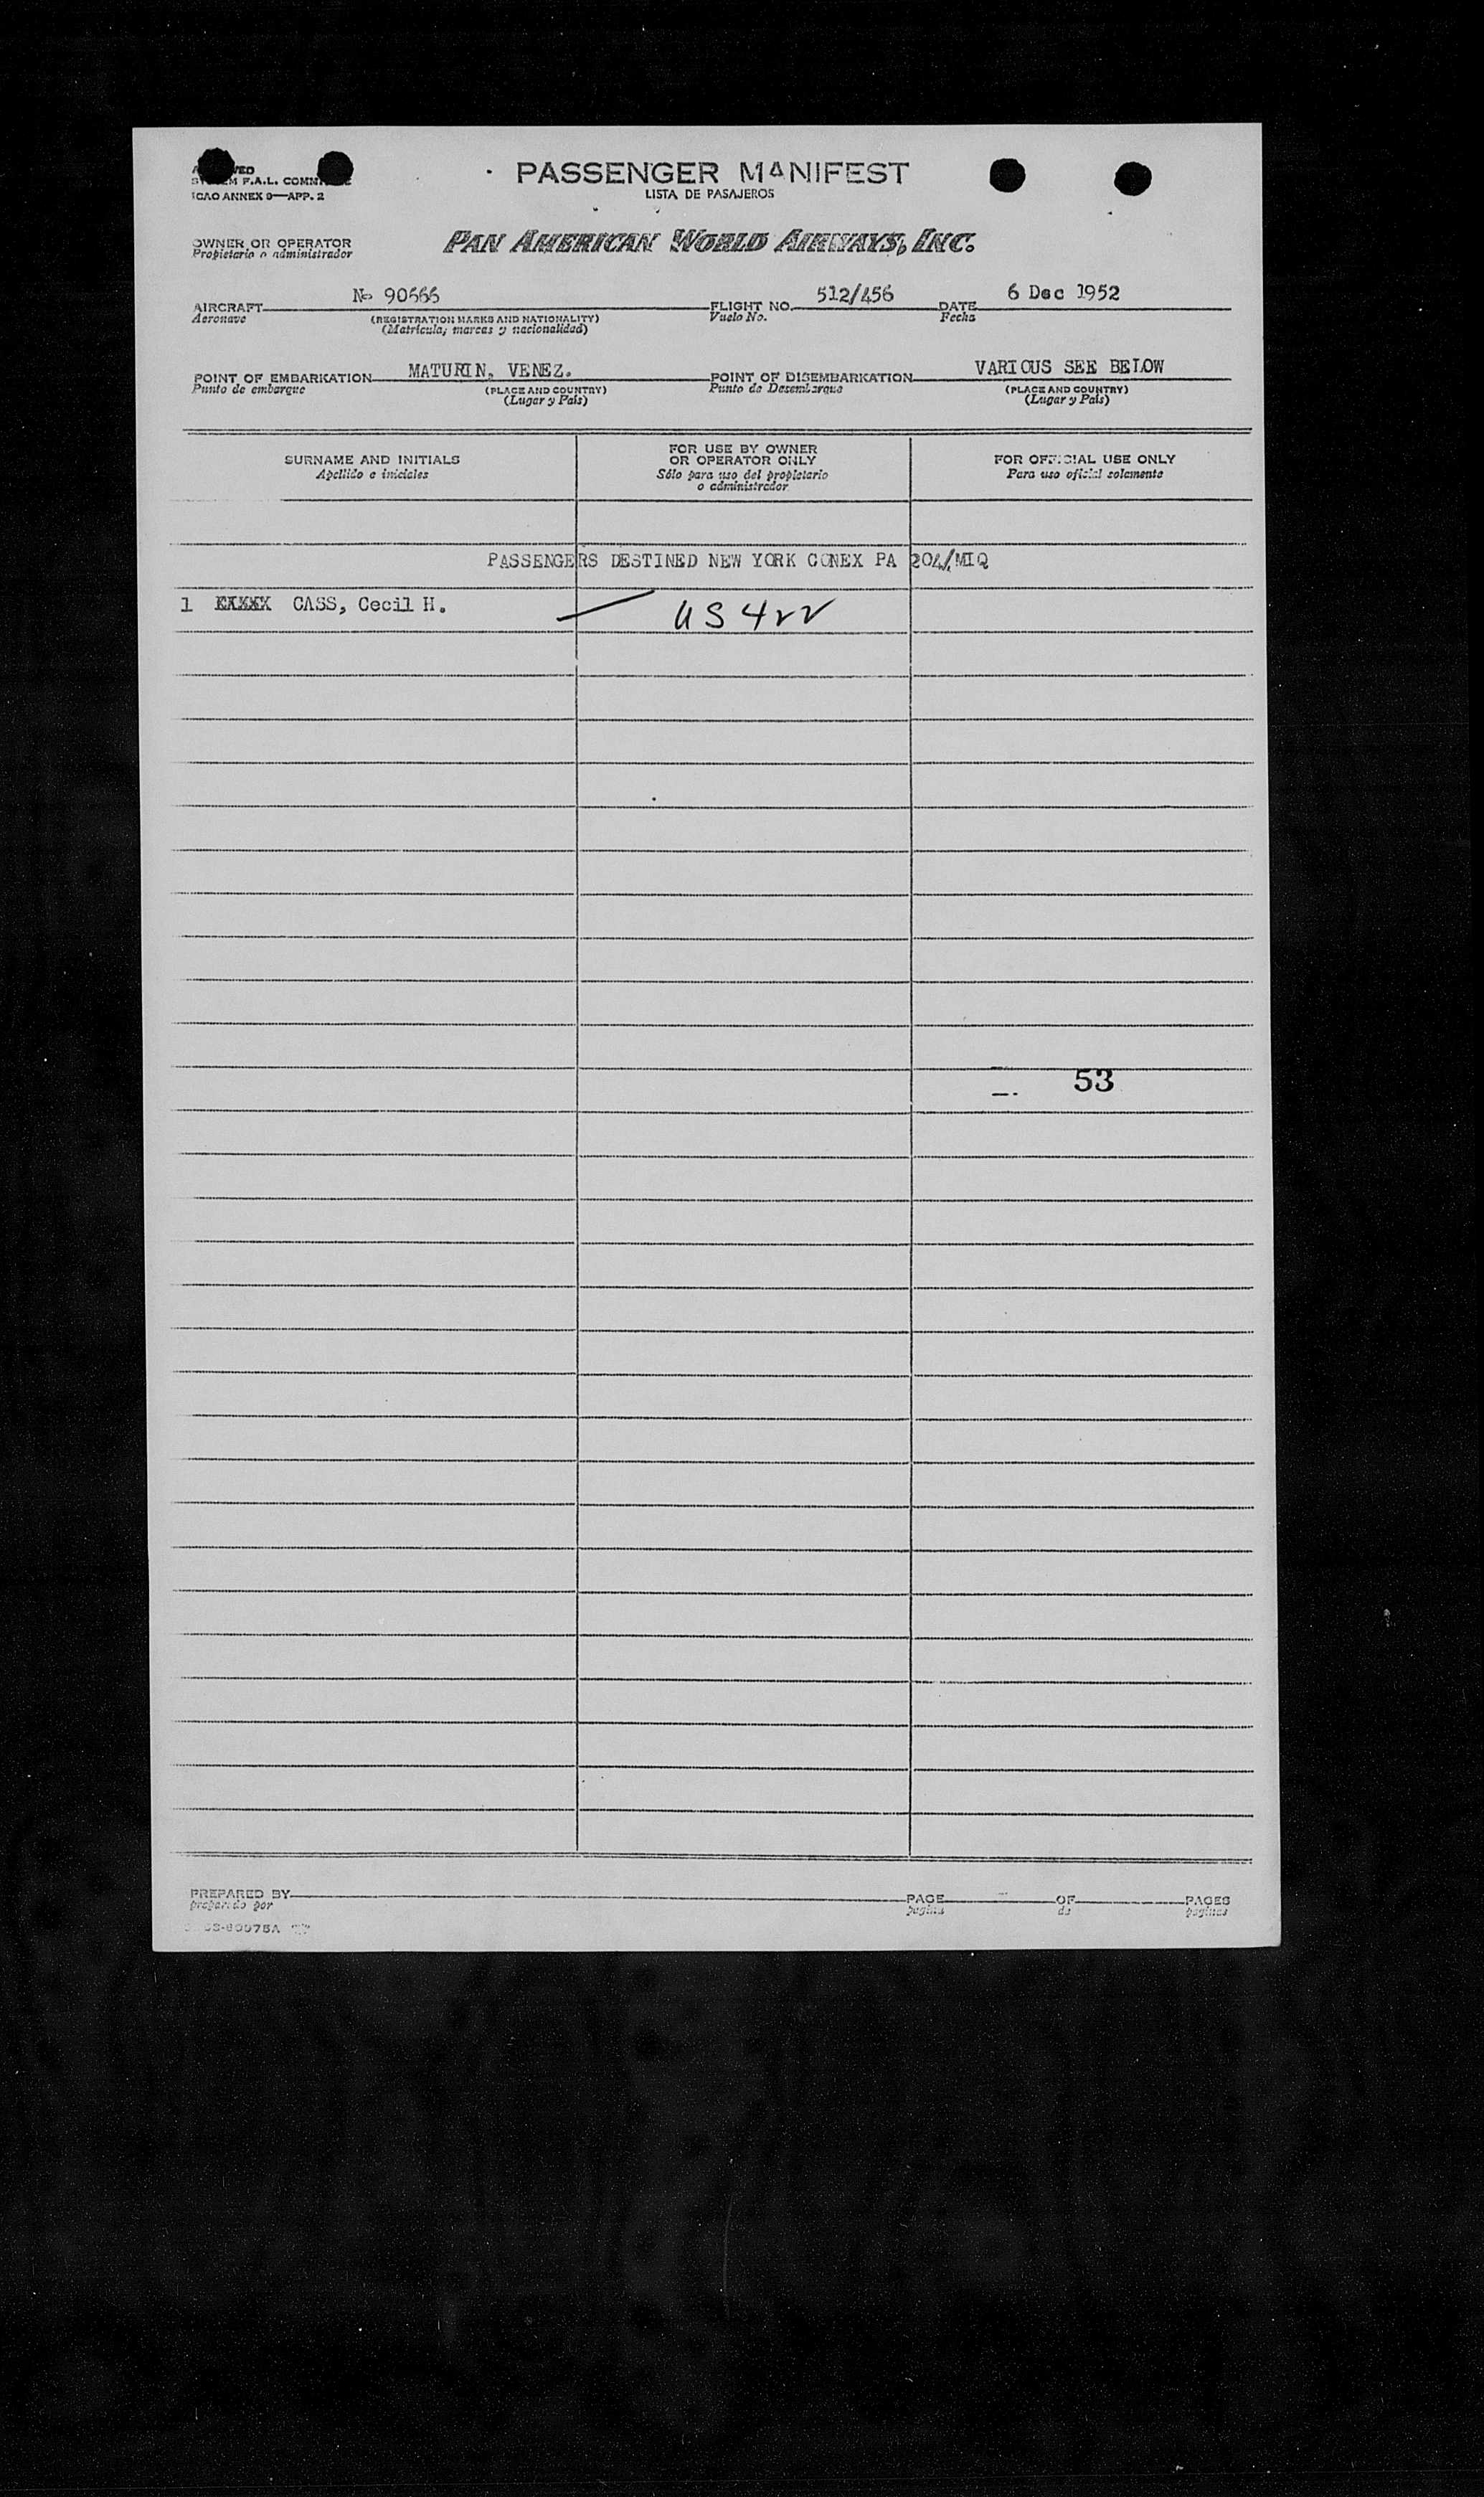 PASSENGER MANIFEST
LISTA DE PASAJEROS
F.A.L.
ICAO ANNEX 9—APP. 2
OWNER OR OPERATOR
Propietario o administrador
PAN AMERICAN WORLD AIRWAYS, INC.
No 90666 512/456 6 Dec 1952
AIRCRAFT FLIGHT NO. DATE
Aeronave (REGISTRATION MARKS AND NATIONALITY) Vuelo No. Fecha
(Matrícula, marcas y nacionalidad)
MATURIN, VENEZ. VARIOUS SEE BELOW
POINT OF EMBARKATION POINT OF DISEMBARKATION
Punto de embarque (PLACE AND COUNTRY) Punto de Desembarque (PLACE AND COUNTRY)
(Lugar y País) (Lugar y País)
SURNAME AND INITIALS
Apellido e iniciales
FOR USE BY OWNER
OR OPERATOR ONLY
Sólo para uso del propietario
o administrador
FOR OFFICIAL USE ONLY
Para uso oficial solamente
PASSENGERS DESTINED NEW YORK CONEX PA 204/MIQ
1 CASS, Cecil H. US 422
53
PREPARED BY PAGE OF PAGES
preparado por pagina de paginas